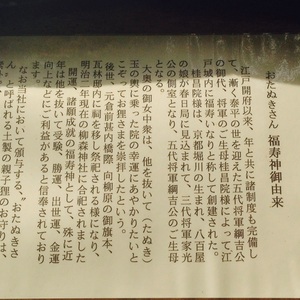 おたぬきさん 福寿神御由来
江戸開府以来、年と共に諸制度も完備し
て、漸く泰平の世を迎えた五代将軍綱吉公
の御代、将軍の生母桂昌院様によって江
戸城内に福寿いなりと称して創建された。
桂昌院様は、京都堀川の生まれ、八百屋
の娘が春日局に見込まれて、三代将軍家光
公の側室となり、五代将軍綱吉公のご生母
となる。
大奥の御女中衆は、他を抜いて（たぬき）
玉の輿に乗った院の幸運にあやかりたいと
こぞってお狸さまを崇拝したという。
後世、元倉前甚内橋際、向柳原の御旗本、
瓦林邸内に祠を移し祭祀される様になり、
明治二年現在の柳森神社に合祀されました
開運、諸願成就の福寿神として、殊に近
年は他を抜いて受験、勝運、出世運、金運
向上などにご利益があると信奉されており
ます。
なお当社において頒与する、“おたぬきさ
ん”と呼ばれる土製の親子狸のお守りは、